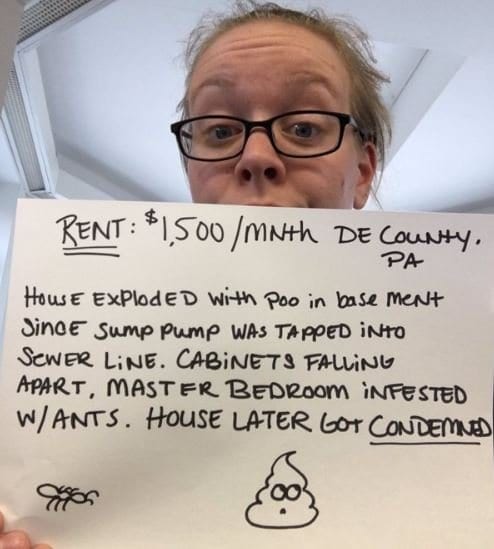 RENT: $1,500/MNth DE COUNTY.
PA
HOUSE EXPLODED With Poo in basement
SiNCE Sump Pump WAS TAPPED iNTO
SEWER LiNE. CABiNETS FALLiNG
APART, MASTER BEDROOM iNFESTED
W/ANTS. HOUSE LATER GOT CONDEMNED